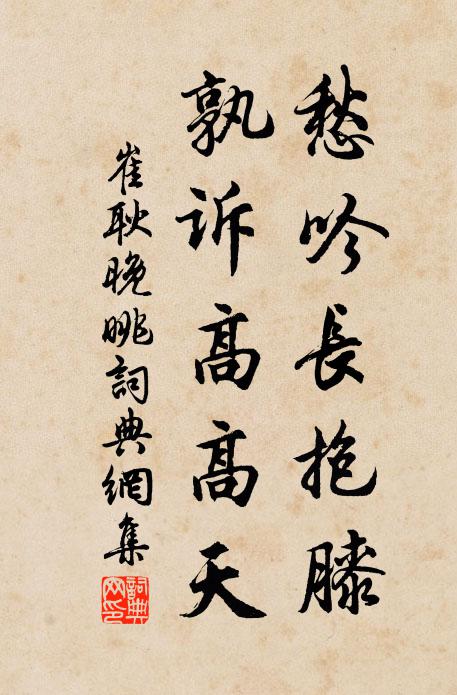 愁吟長抱膝
孰訴高高天
崔耿晚眺詞典網集
詞典网印